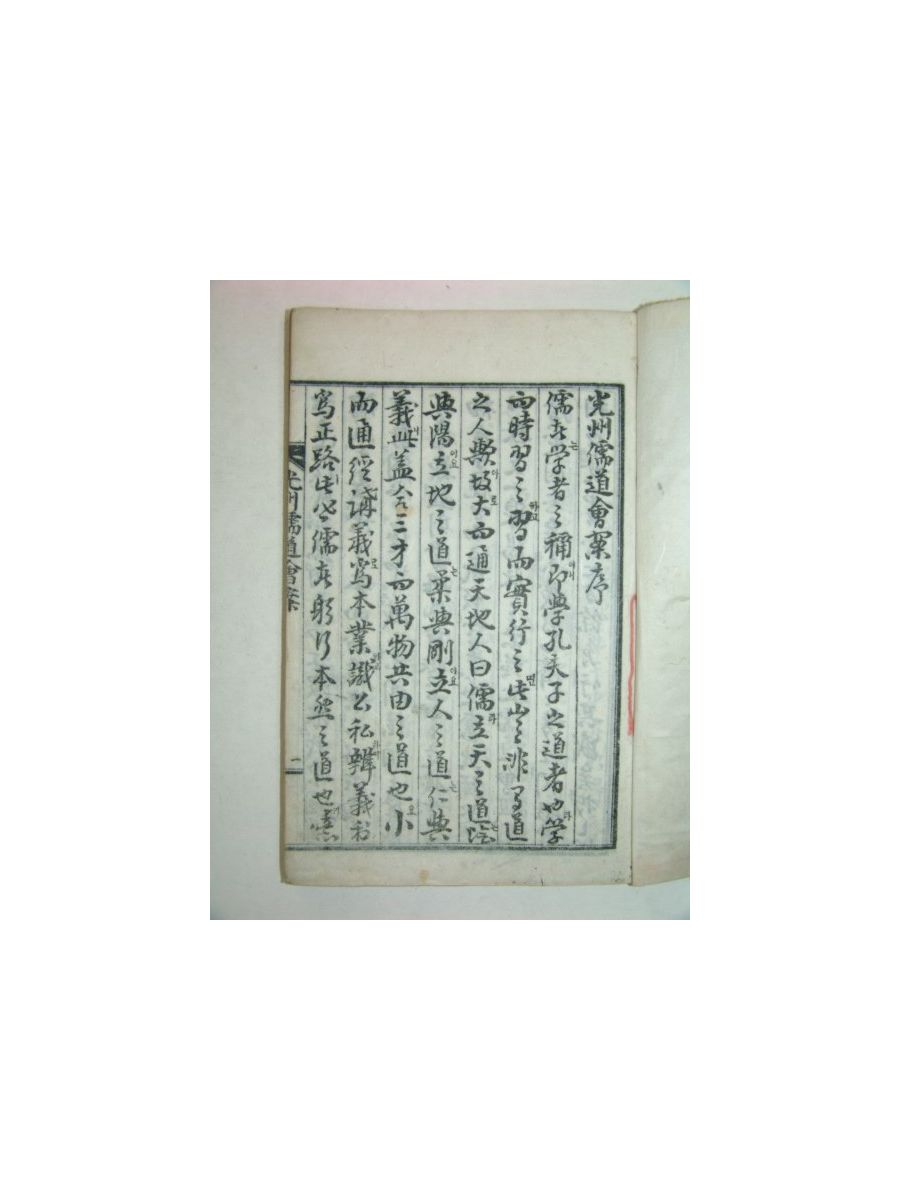 光州儒道會案序
儒者는学者之稱이니即學孔夫子之道者也라学
而時習之하고習而實行之면此豈非有道
之人歟아故로大而通天地人曰儒라立天之道는陰
與陽이요立地之道는柔與剛이요立人之道는仁與
義此盖合三才而萬物共由之道也오小
而通經講義로為本業하고識公私하야辨義利
為正路此儒者躬行本然之道也噫
光州儒道會案
一